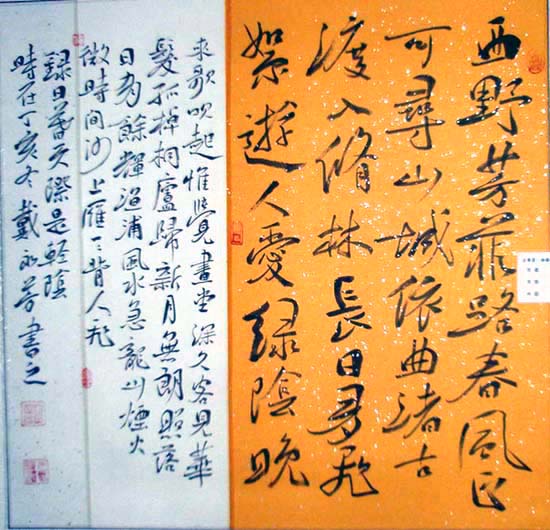 西野芳菲路春風正
可尋山城依曲渚古
渡入脩林長日多飛
絮遊人愛綠陰晚
來歌吹起惟覺畫堂深久客見華
髮孤棹桐廬歸新月無朗照落
日有餘輝漁浦風水急龍山煙火
微時聞沙上雁一一背人飛
錄日暮天際是輕陰
時在丁亥冬戴永芳書之